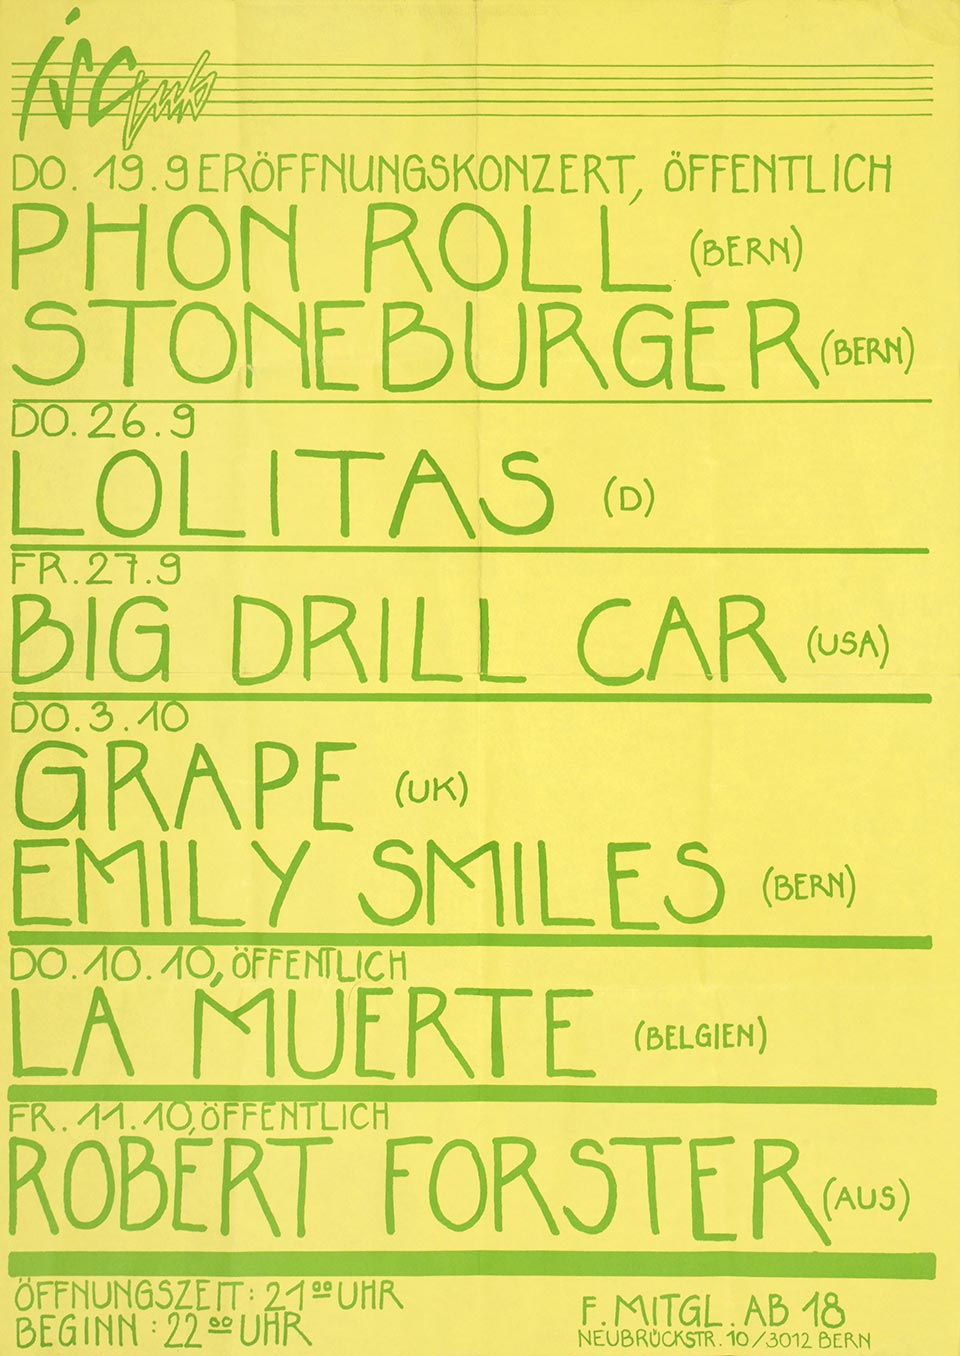 iSCLUB
DO. 19.9 ERÖFFNUNGSKONZERT, ÖFFENTLICH
PHON ROLL (BERN)
STONEBURGER (BERN)
DO. 26.9
LOLITAS (D)
FR. 27.9
BIG DRILL CAR (USA)
DO. 3.10
GRAPE (UK)
EMILY SMILES (BERN)
DO. 10.10, ÖFFENTLICH
LA MUERTE (BELGIEN)
FR. 11.10, ÖFFENTLICH
ROBERT FORSTER (AUS)
ÖFFNUNGSZEIT: 21⁰⁰ UHR
BEGINN: 22⁰⁰ UHR
F. MITGL. AB 18
NEUBRÜCKSTR. 10/3012 BERN